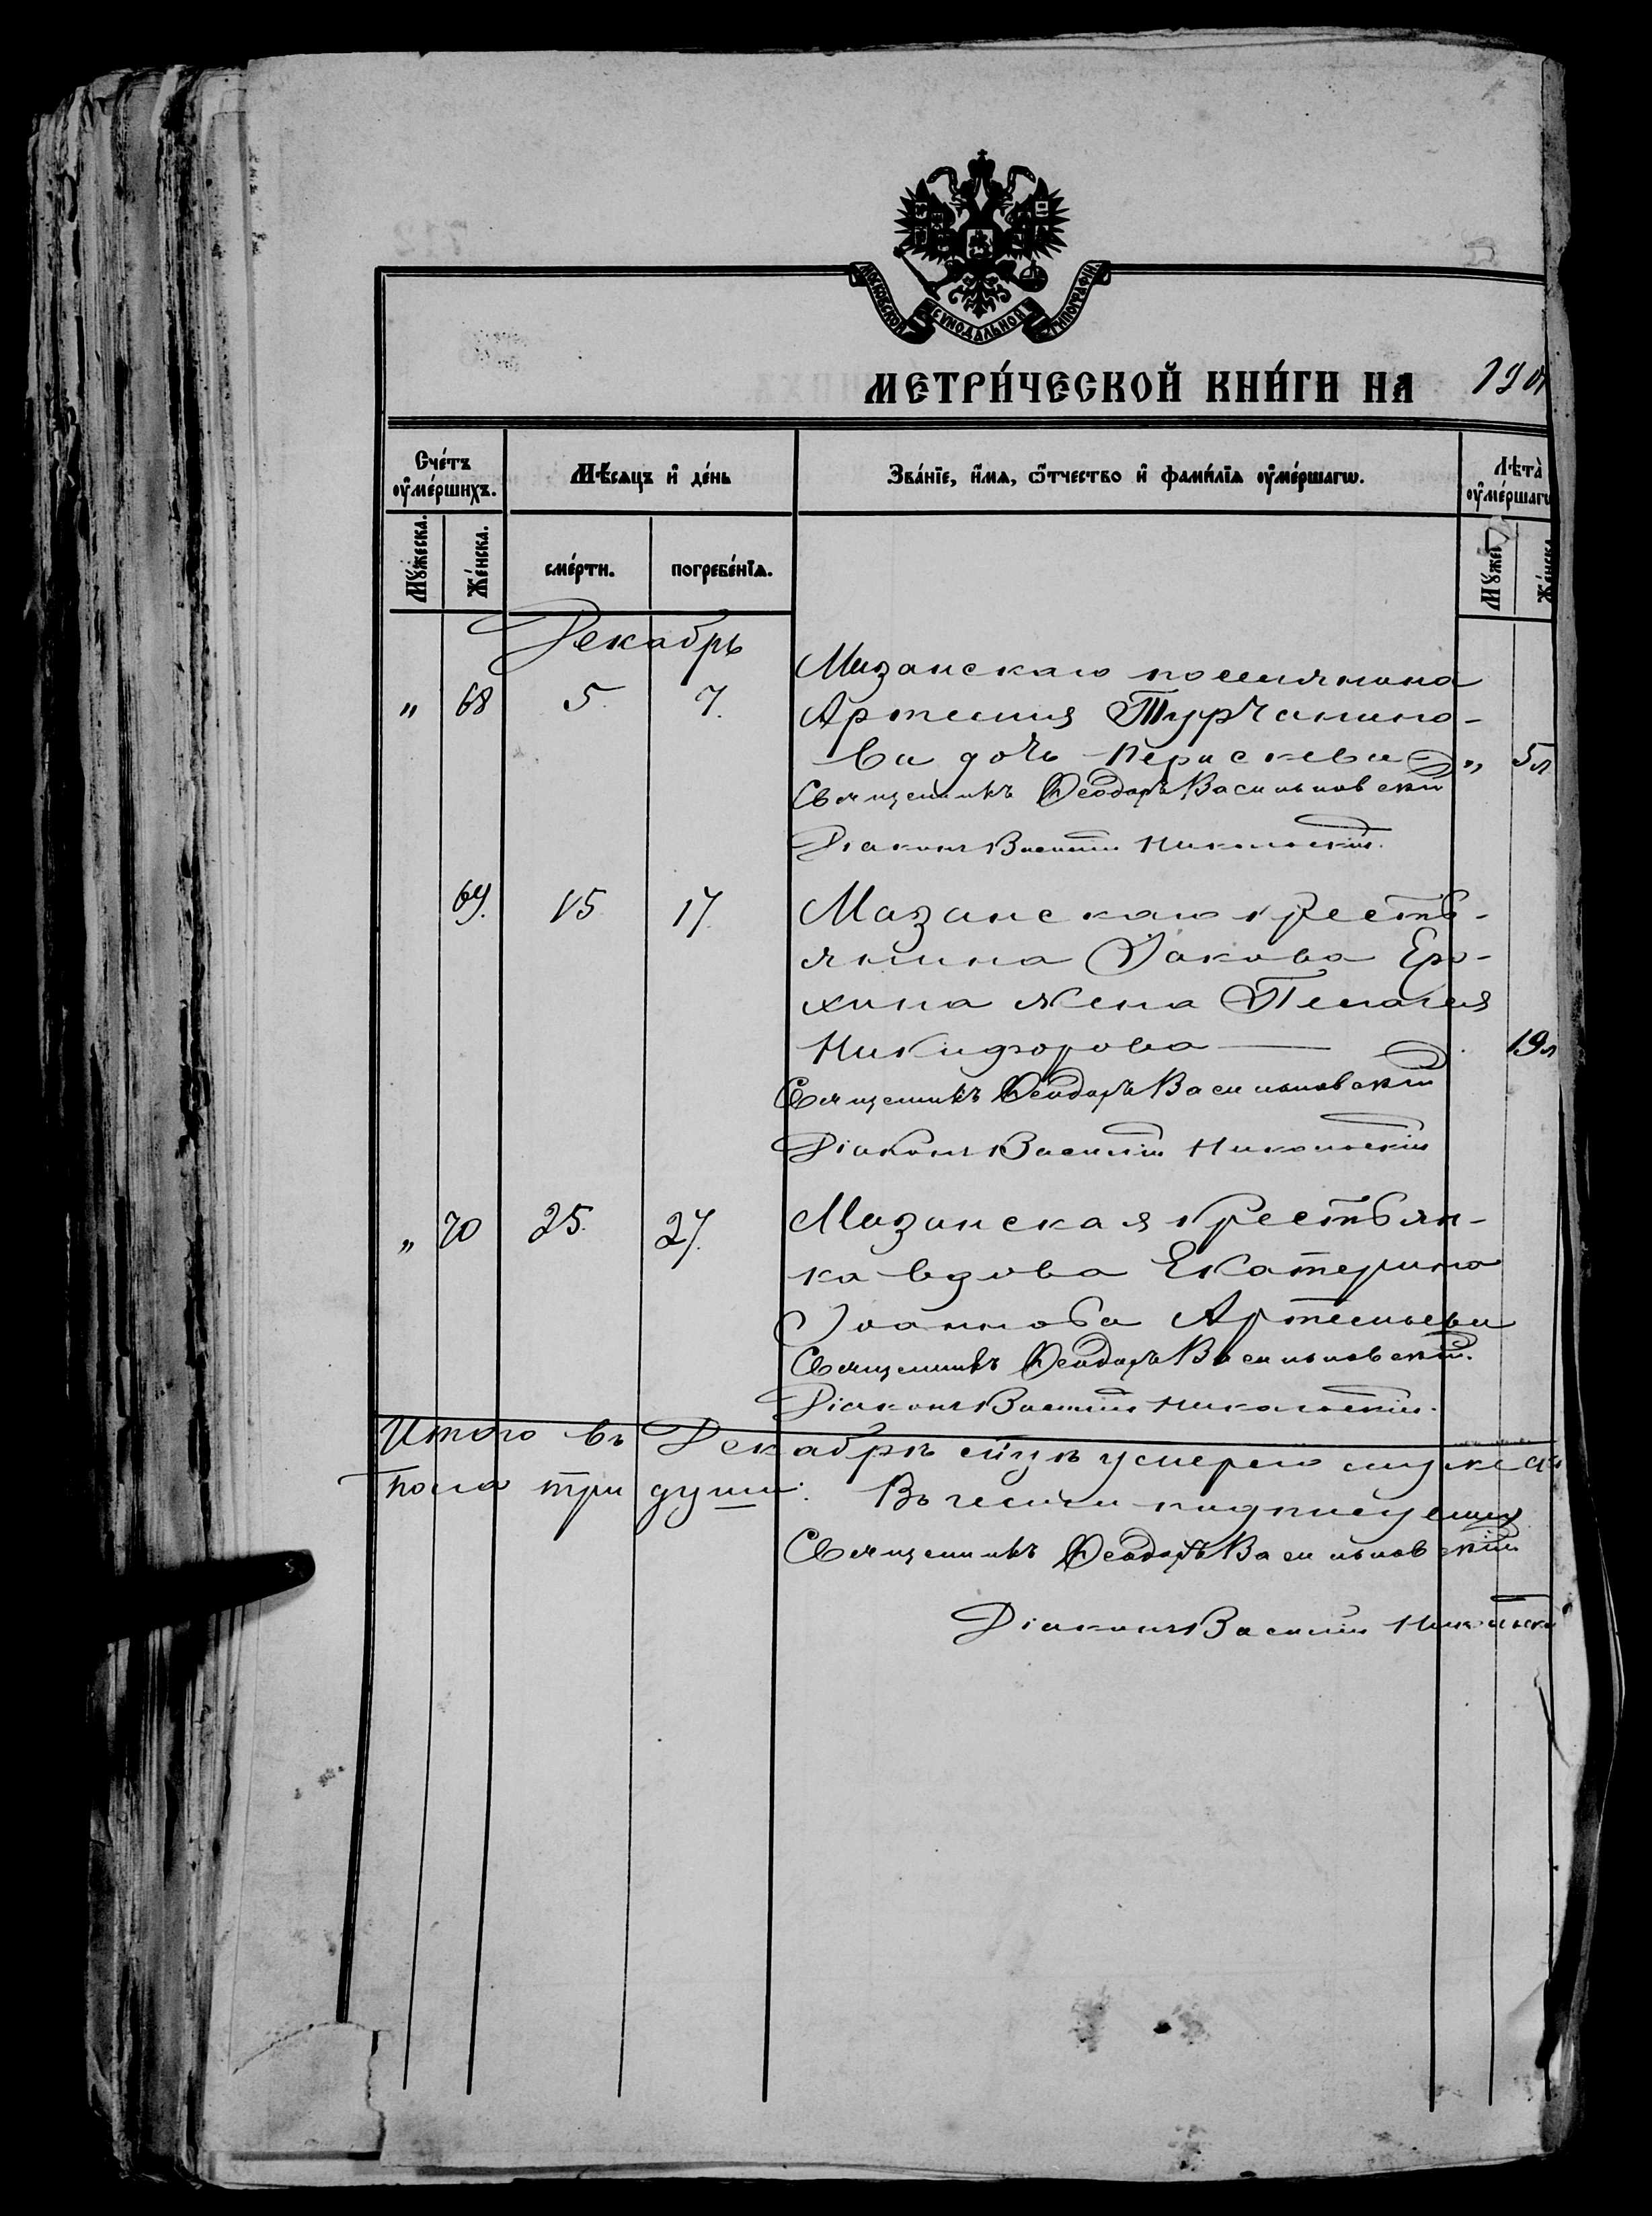 МОСКОВСКОЙ СѴНОДАЛЬНОЙ ТИПОГРАФІИ
МЕТРИ́ЧЕСКОЙ КНИ́ГИ НА 190
Сче́тъ оу҆ме́ршихъ.
Мѣ́сяцъ и҆ де́нь
Зва́нїе, и҆́мѧ, ѻ҆́тчество и҆ фами́лїѧ оу҆ме́ршагѡ.
Лѣта̀ оу҆ме́ршагѡ
Мꙋ́жеска.
Же́нска.
сме́рти.
погребе́нїѧ.
Мꙋ́жес
Же́нска
Декабрь
Мазанскаго поселянина
" 68 5. 7. Артемия Турчанино-
ва дочь Параскева " 5 л
Священникъ Ѳеодоръ Васильковскій
Діаконъ Василій Никольскій.
69. 15 17. Мазанскаго кресть-
янина Іакова Еро-
хина жена Пелагея
Никифорова — 19 л
Священникъ Ѳеодоръ Васильковскій
Діаконъ Василій Никольскій
" 70 25. 27. Мазанская крестьян-
ка вдова Екатерина
Іоаннова Артемьева
Священникъ Ѳеодоръ Васильковскій.
Діаконъ Василій Никольскій.
Итого въ Декабрѣ умерло
пола три души. В подписуемся
Священникъ Ѳеодоръ Васильковскій
Діаконъ Василій Никольскі